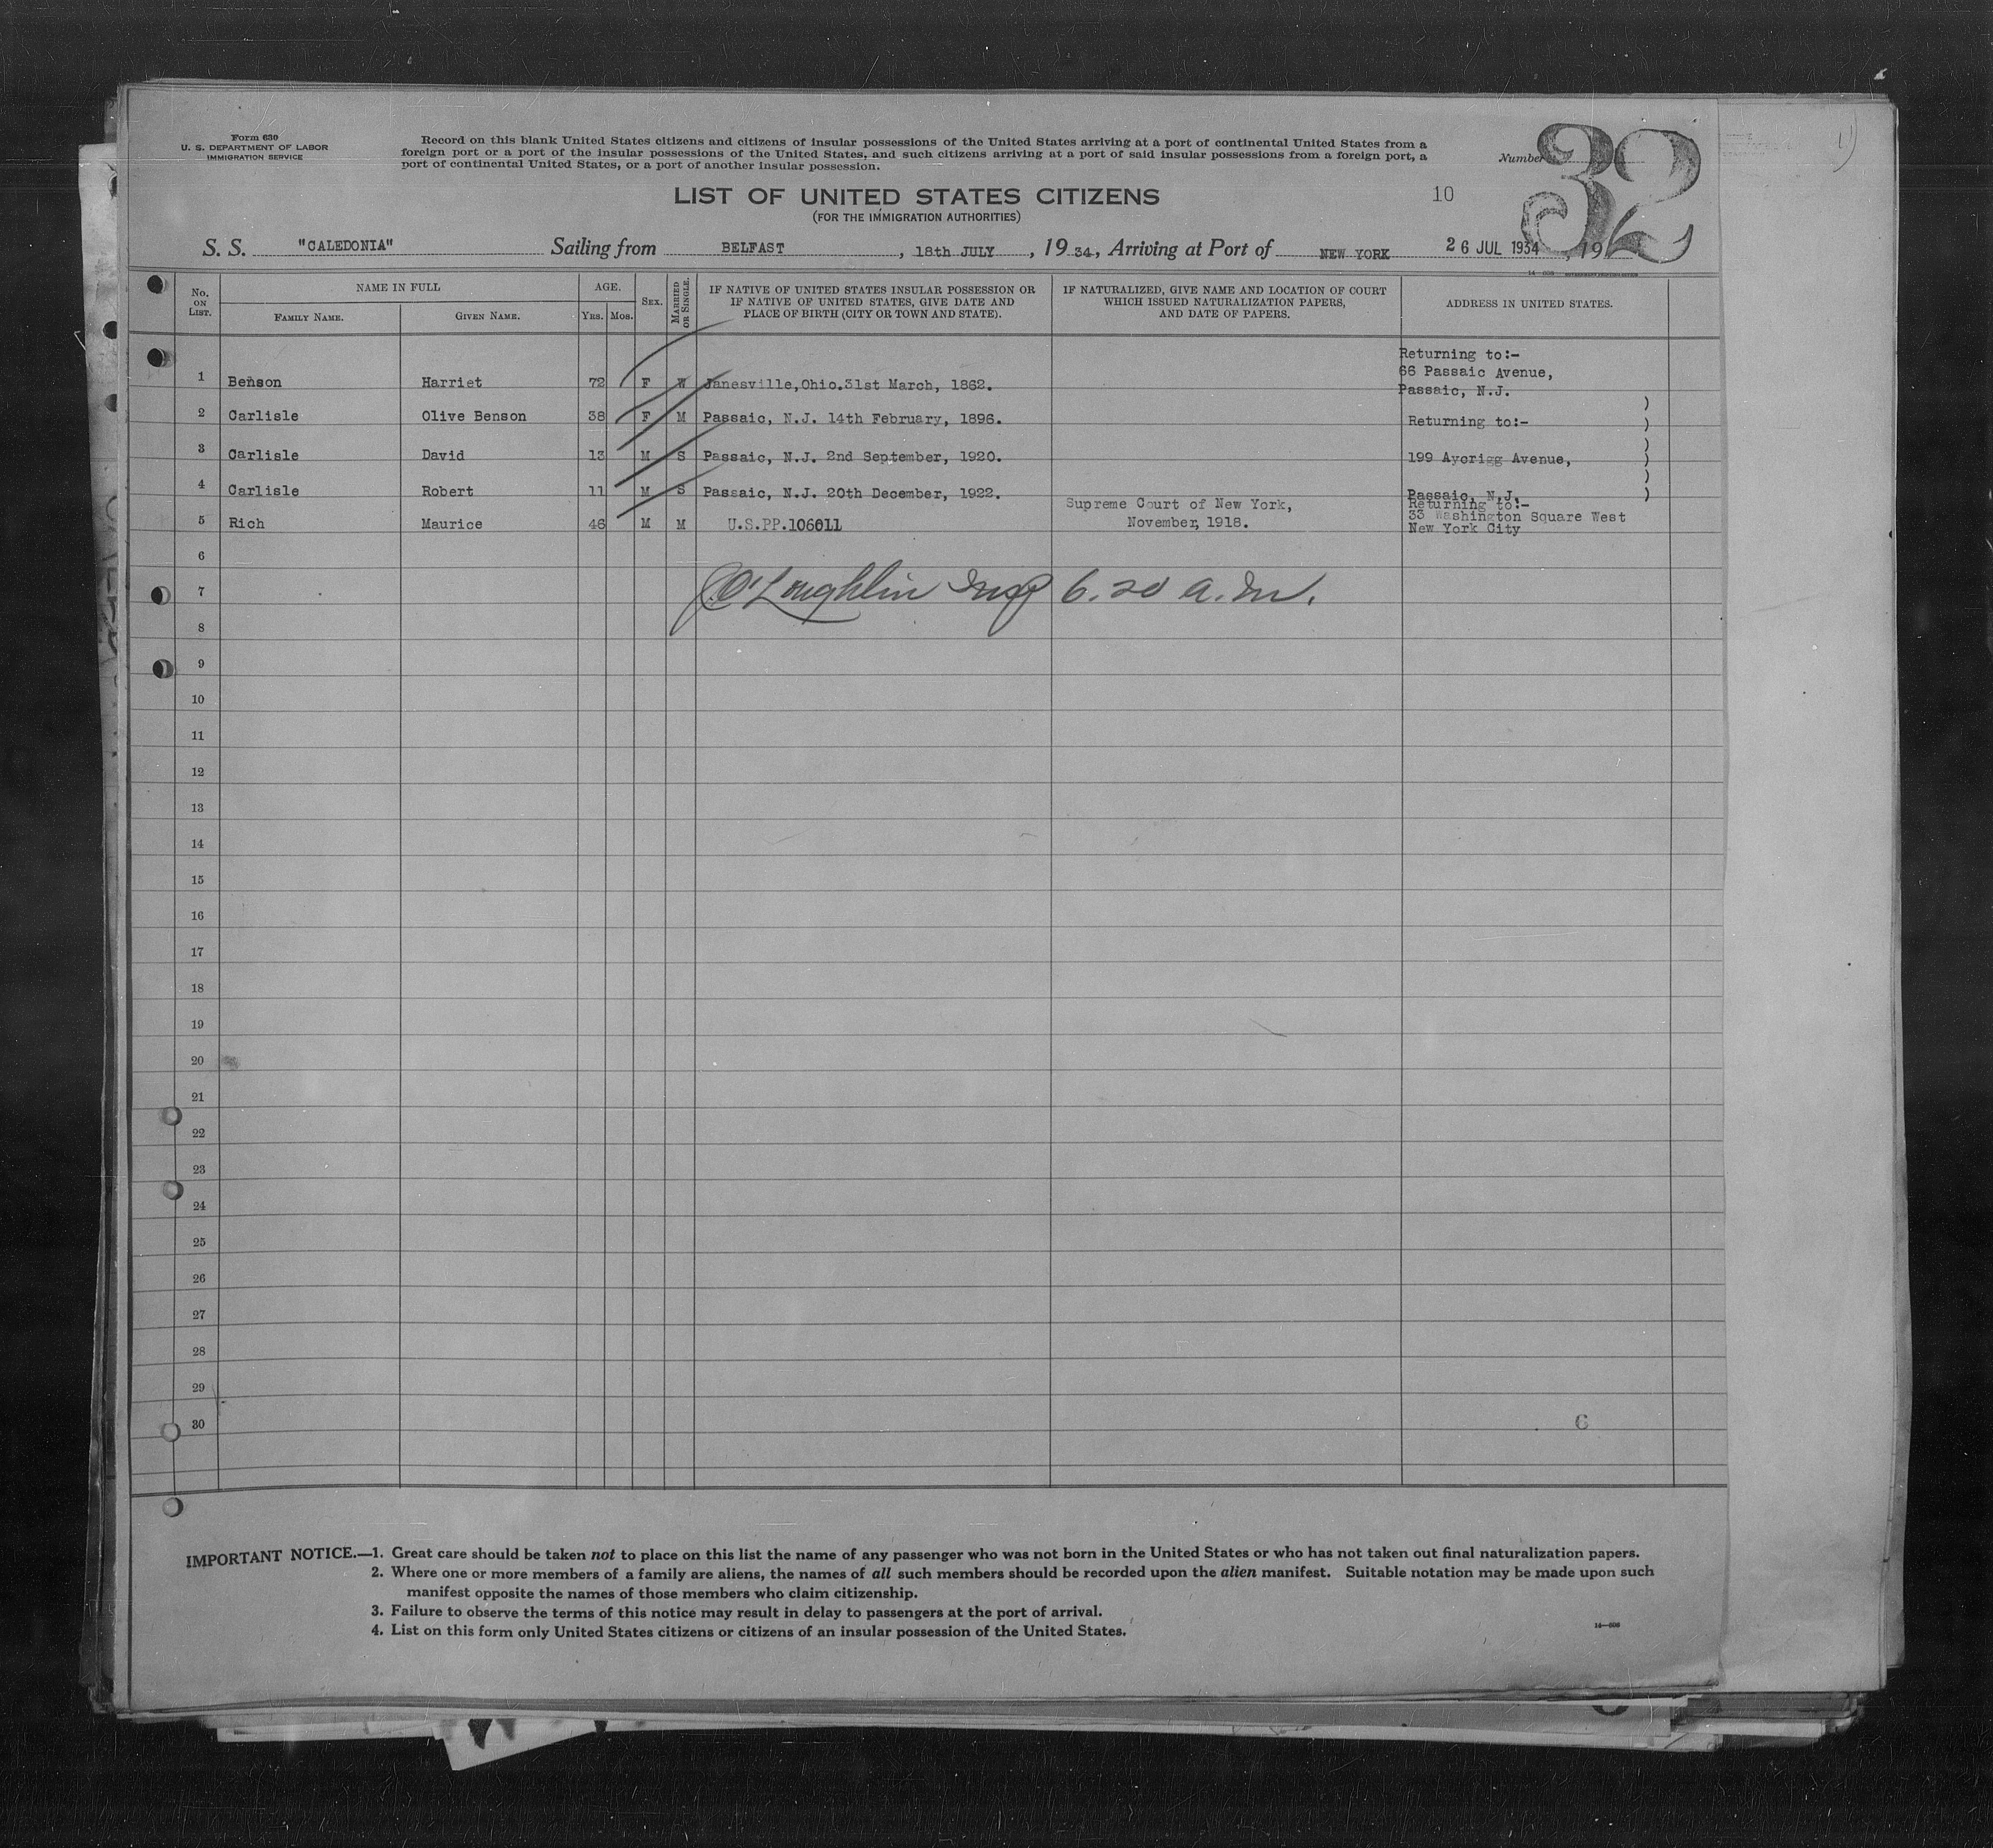 Form 630
U. S. DEPARTMENT OF LABOR
IMMIGRATION SERVICE
Record on this blank United States citizens and citizens of insular possessions of the United States arriving at a port of continental United States from a
foreign port or a port of the insular possessions of the United States, and such citizens arriving at a port of said insular possessions from a foreign port, a
port of continental United States, or a port of another insular possession.
Number 32
LIST OF UNITED STATES CITIZENS
10
(FOR THE IMMIGRATION AUTHORITIES)
S. S. "CALEDONIA" Sailing from BELFAST, 18th JULY, 1934, Arriving at Port of NEW YORK 26 JUL 1934, 19
No. ON LIST. NAME IN FULL AGE. SEX. MARRIED OR SINGLE. IF NATIVE OF UNITED STATES INSULAR POSSESSION OR IF NATIVE OF UNITED STATES, GIVE DATE AND PLACE OF BIRTH (CITY OR TOWN AND STATE). IF NATURALIZED, GIVE NAME AND LOCATION OF COURT WHICH ISSUED NATURALIZATION PAPERS, AND DATE OF PAPERS. ADDRESS IN UNITED STATES.
FAMILY NAME. GIVEN NAME. YRS. MOS.
Returning to:-
66 Passaic Avenue,
1 Benson Harriet 72 F W Janesville,Ohio.31st March, 1862. Passaic, N.J.
2 Carlisle Olive Benson 38 F M Passaic, N.J. 14th February, 1896. Returning to:- )
3 Carlisle David 13 M S Passaic, N.J. 2nd September, 1920. 199 Aycrigg Avenue, )
4 Carlisle Robert 11 M S Passaic, N.J. 20th December, 1922. Passaic, N.J. )
Supreme Court of New York, Returning to:-
33 Washington Square West
5 Rich Maurice 46 M M U.S.PP.106011 November, 1918. New York City
6
7 O'Loughlin Insp 6.20 a.m.
8
9
10
11
12
13
14
15
16
17
18
19
20
21
22
23
24
25
26
27
28
29
30 6
IMPORTANT NOTICE.—1. Great care should be taken not to place on this list the name of any passenger who was not born in the United States or who has not taken out final naturalization papers.
2. Where one or more members of a family are aliens, the names of all such members should be recorded upon the alien manifest. Suitable notation may be made upon such
manifest opposite the names of those members who claim citizenship.
3. Failure to observe the terms of this notice may result in delay to passengers at the port of arrival.
4. List on this form only United States citizens or citizens of an insular possession of the United States.